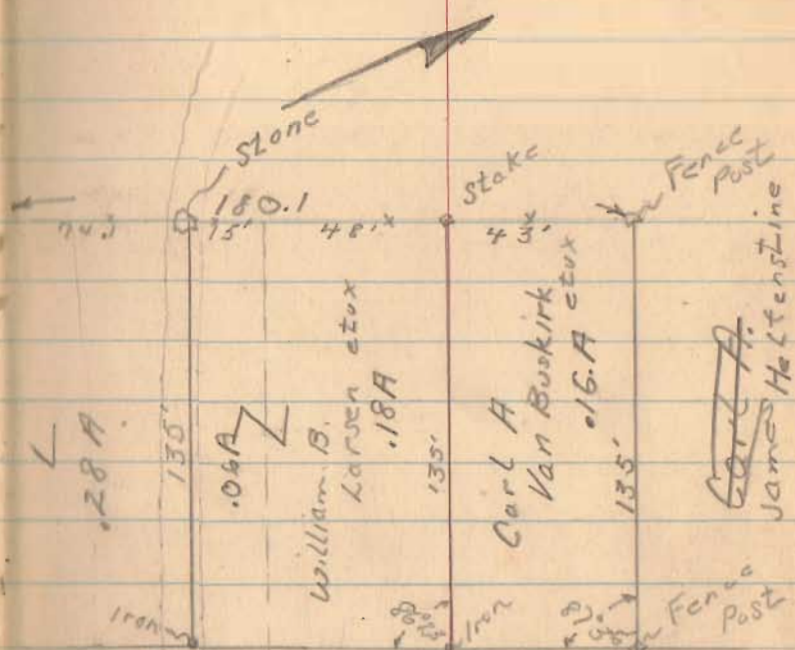 Stone
Stake
Fence
Post
180.1
74.5
15'
48'x
43'
L
.28 A.
135'
.06A
William B.
Larsen etux
.18A
135'
Carl A
Van Buskirk
etux
.16.A
135'
Carl A.
James Helfenstine
Iron
Iron
Fence
Post